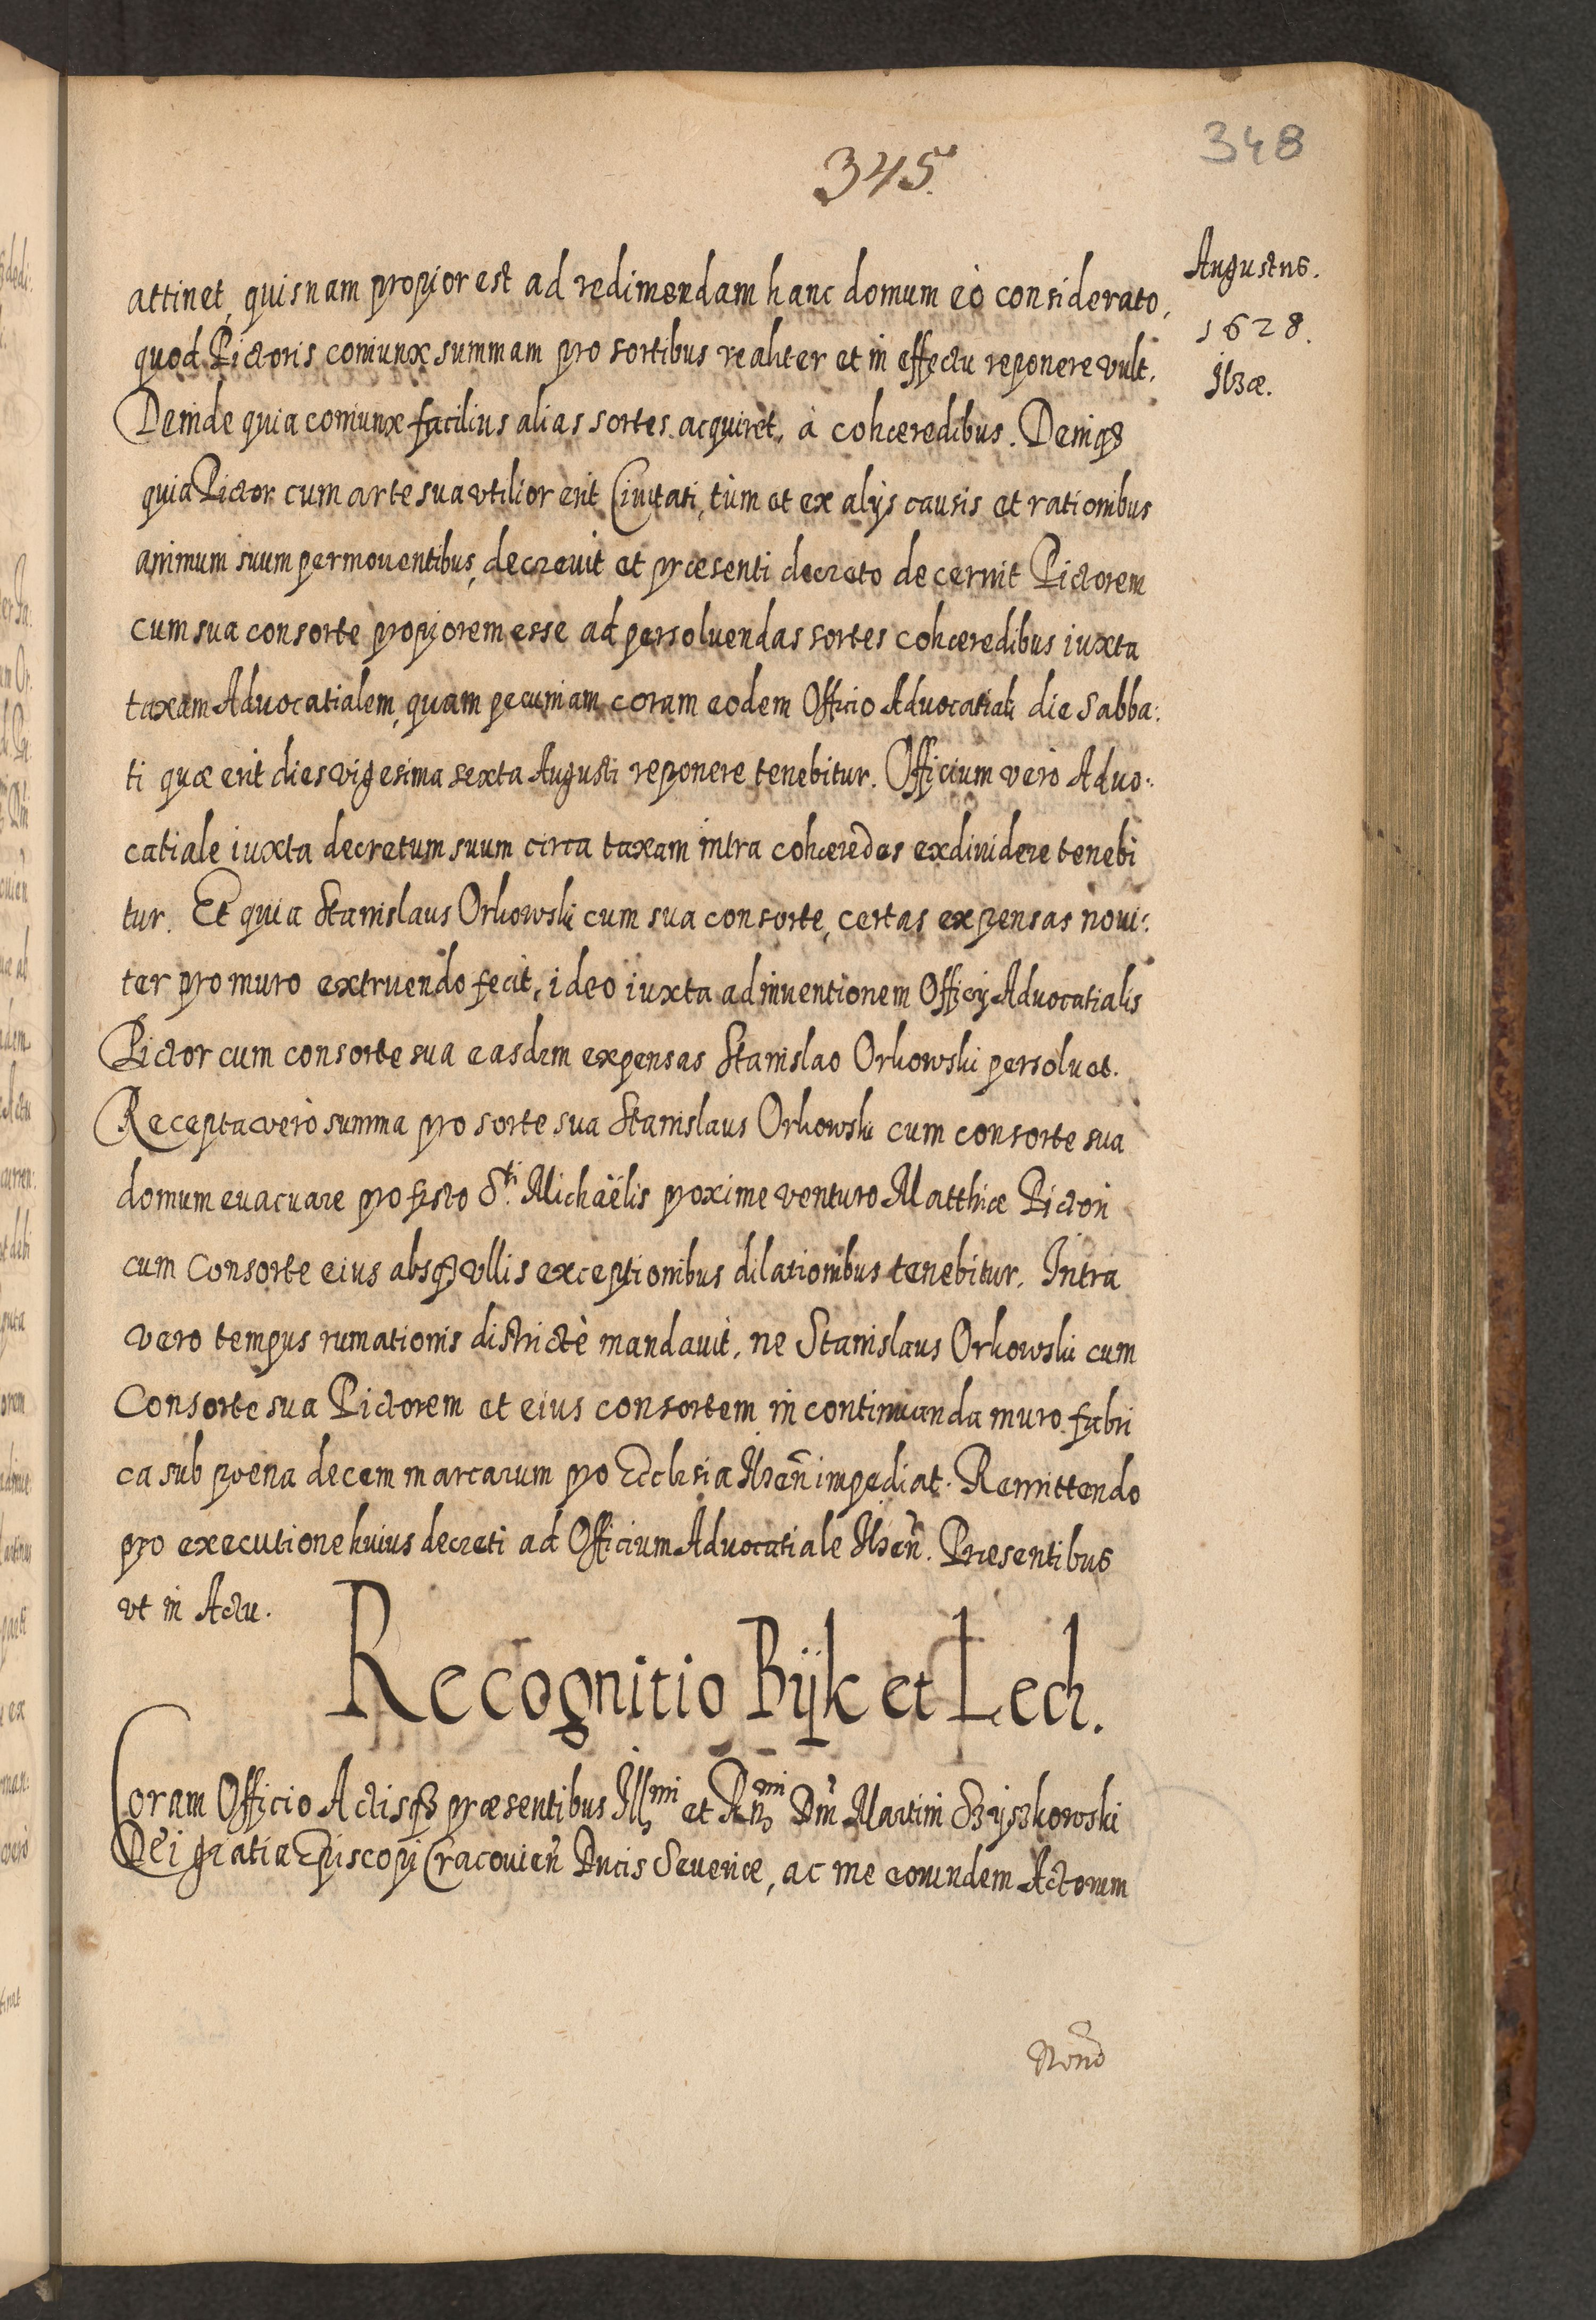 348
345.
Augustus.
1628.
Ilzæ.
attinet, quisnam propior est ad redimendam hanc domum eò considerato,
quod Pictoris coniunx summam pro sortibus realiter et in effectu reponere vult.
Deinde quia coniunx facilius alias sortes acquiret, à cohæredibus. Deniqꝫ
quia Pictor cum arte sua vtilior erit Ciuitati, tùm et ex alijs causis et rationibus
animum suum permouentibus, decreuit et præsenti decreto decernit Pictorem
cum sua consorte propiorem esse ad persoluendas sortes cohæredibus iuxta
taxam Aduocatialem, quam pecuniam coram eodem Officio Aduocatiali die Sabba:
ti quæ erit dies vigesima sexta Augusti reponere tenebitur. Officium verò Aduo:
catiale iuxta decretum suum circa taxam intra cohæredes exdiuidere tenebi
tur. Et quia Stanislaus Orkowski cum sua consorte, certas expensas noui:
ter pro muro extruendo fecit, ideo iuxta adinuentionem Officij Aduocatialis
Pictor cum consorte sua easdem expensas Stanislao Orkowski persoluet.
Recepta verò summa pro sorte sua Stanislaus Orkowski cum consorte sua
domum euacuare pro festo S.ti Michaëlis proxime venturo Matthiæ Pictori
cum Consorte eius absqꝫ vllis exceptionibus dilationibus tenebitur. Intra
vero tempus rumationis districtè mandauit, ne Stanislaus Orkowski cum
Consorte sua Pictorem et eius consortem in continuanda muro fabri
ca sub pœna decem marcarum pro Ecclesia Ilzen̄ impediat. Remittendo
pro executione huius decreti ad Officium Aduocatiale Ilzen̄. Præsentibus
vt in Actu.
Recognitio Bÿk et Lech.
Coram Officio Actisqꝫ præsentibus Illmi et Rn̄mi Dn̄i Martini Szyszkowski
Dei gratia Episcopi Cracouien̄ Ducis Seueriæ, ac me eorundem Actorum